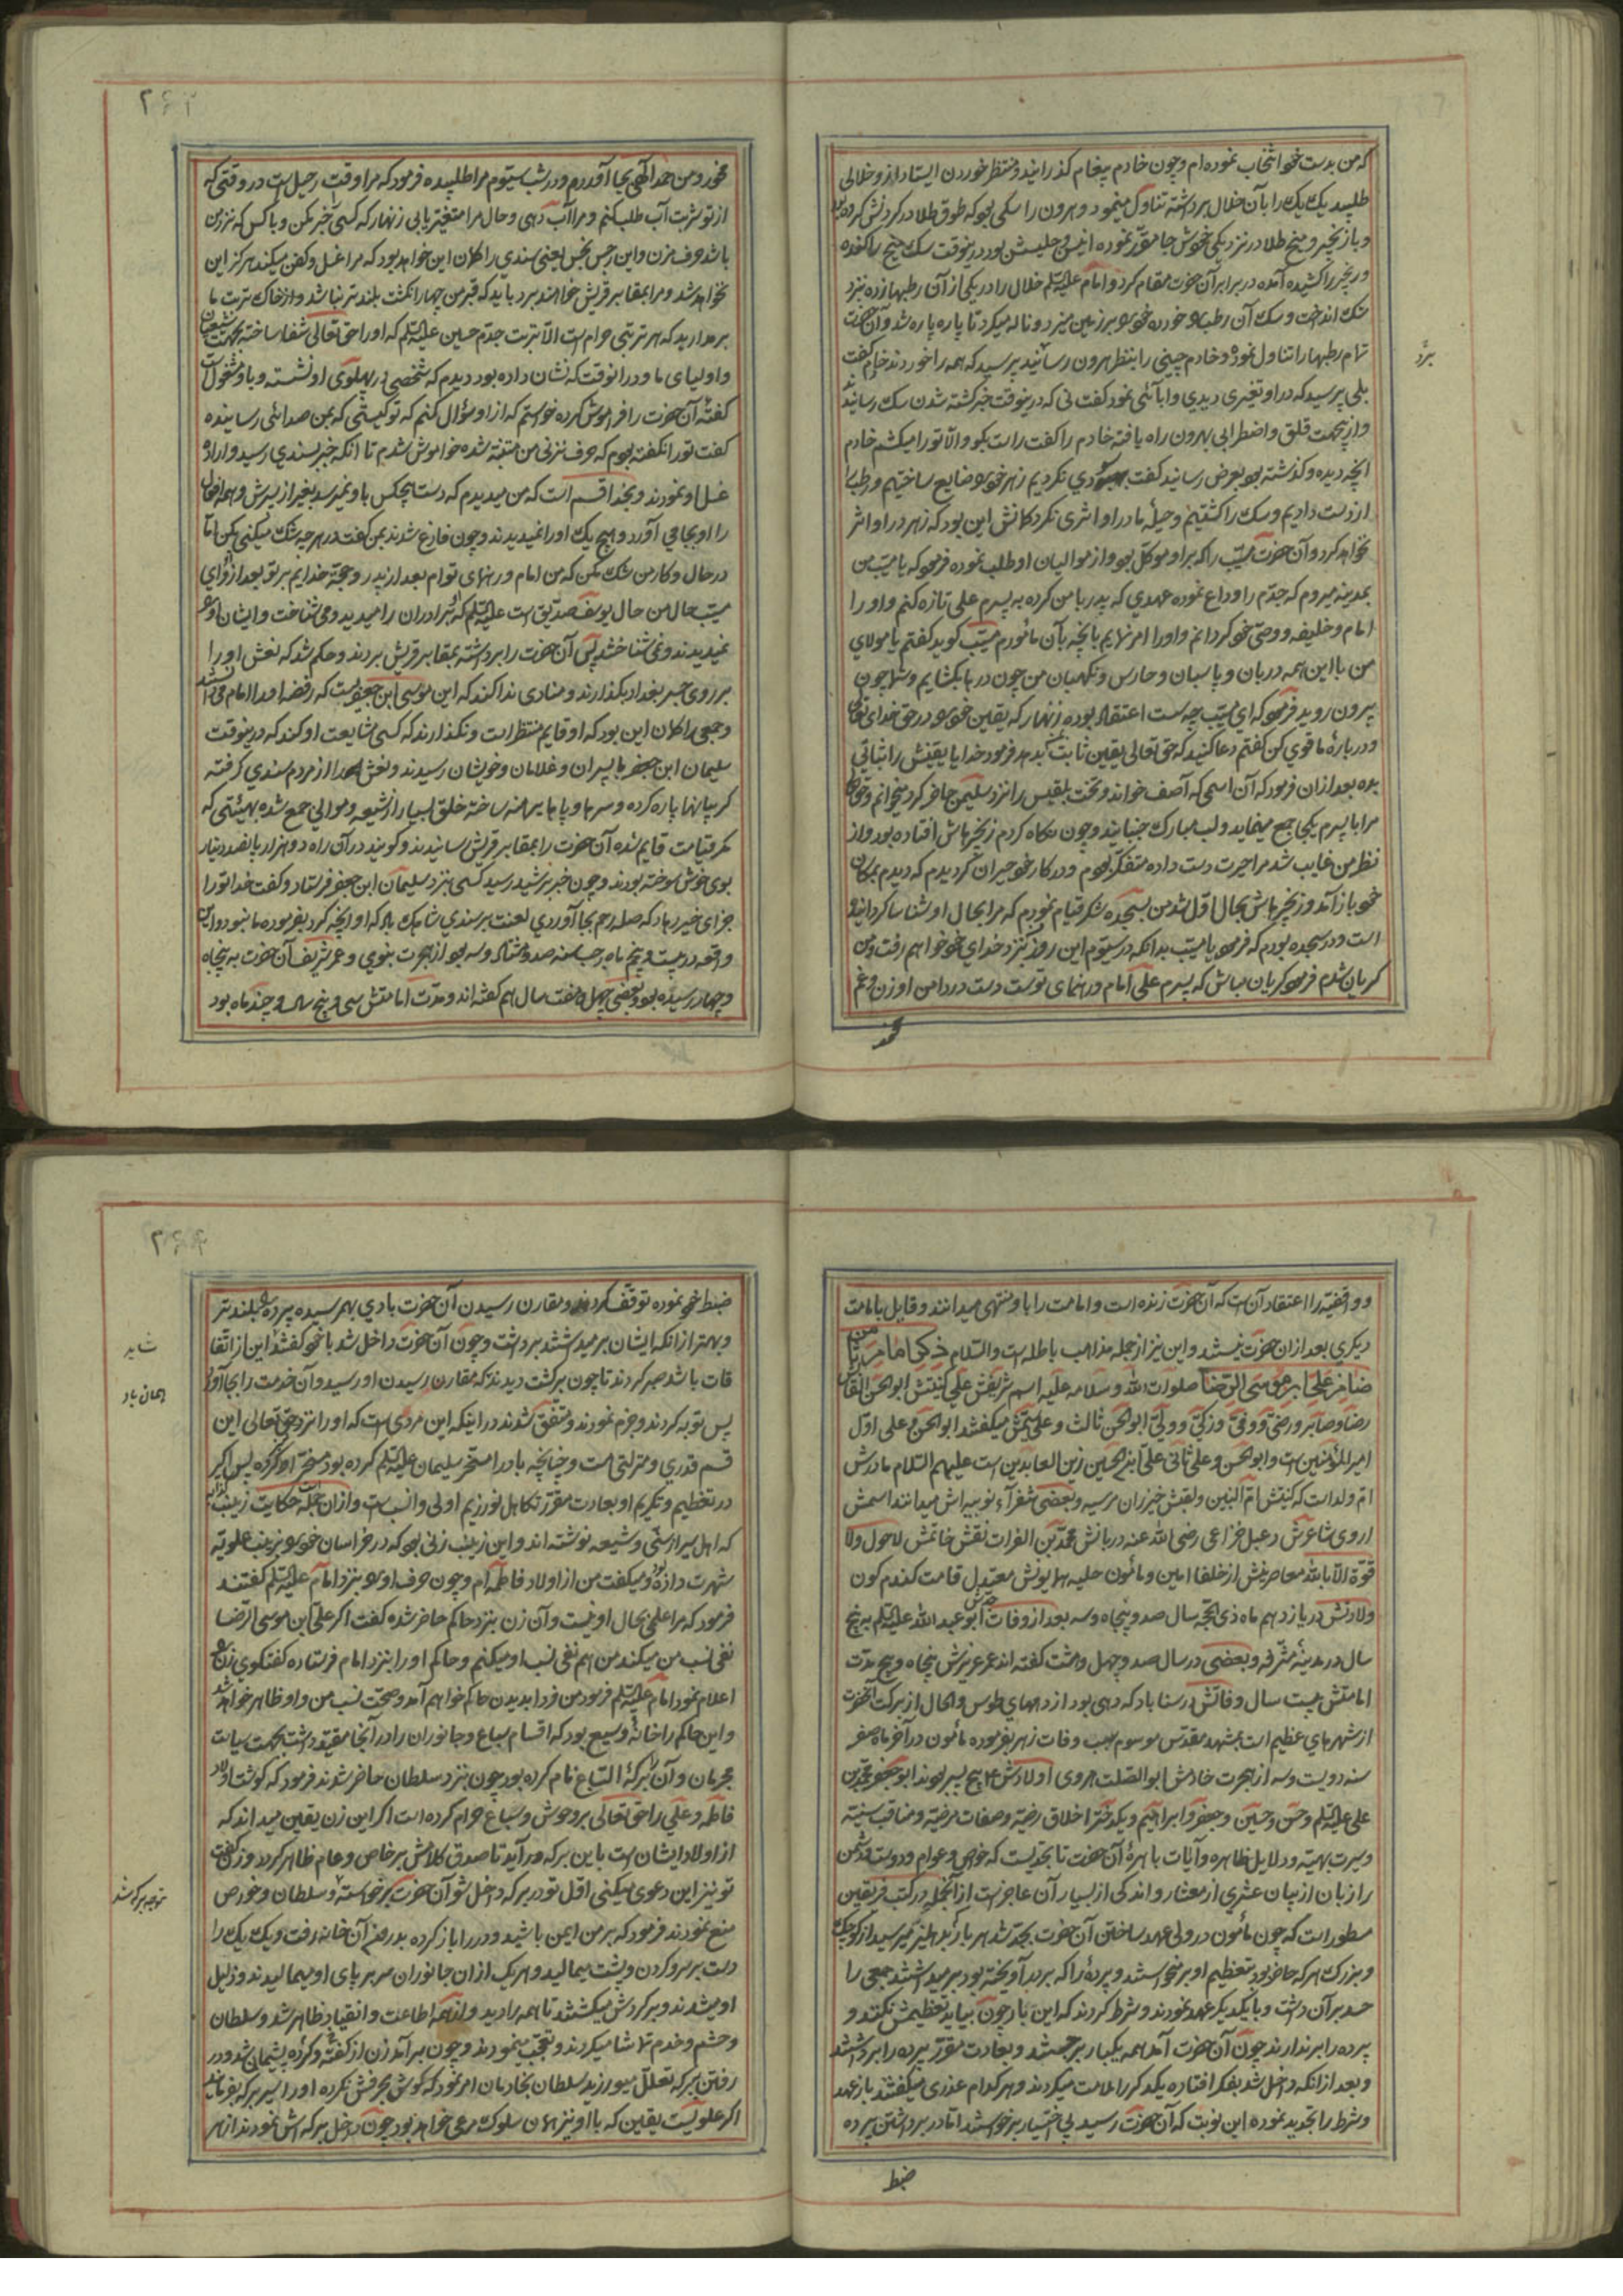 که من بدست خود انتخاب نموده‌ام و چون خادم پیغام گذرانید و منتظر خوردن ایستاد از و خلالی
طلبید یک یک را بآن خلال برداشته تناول مینمود و هرون را سکی بود که طوق طلا در گردنش کرده بود
و با زنجیر و میخ طلا در نزدیکی خودش جا مقرر نموده انیس و جلیسش بود درینوقت سک میخ را کنده
و زنجیر را کشیده آمده در برابر آن حضرت مقام کرد و امام علیه السلم خلال را در یکی از آن رطبها زده نزد
سک انداخت و سک آن رطب را خورده خود را بر زمین میزد و ناله میکرد تا پاره پاره شد و آن حضرت
تمام رطبها را تناول نموده و خادم چینی را بنظر هرون رسانید پرسید که همه را خوردند خادم گفت
برد
بلی پرسید که در او تغیری دیدی و ابائی نمود گفت نی که درینوقت خبر کشته شدن سک رسانیدند
و ازینجهت قلق و اضطرابی بهرون راه یافته خادم را گفت راست بگو والا تو را میکشم خادم
انچه دیده و گذشته بود بعرض رسانید گفت سودی نکردیم زهر خود را ضایع ساختیم و رطب را
از دست دادیم و سک را کشتیم و حیلهٔ ما در او اثری نکرد گمانش این بود که زهر در او اثر
نخواهد کرد و آن حضرت مسیب را که بر او موکل بود و از موالیان او طلب نموده فرمود که یا مسیب من
بمدینه میروم که جدم را وداع نموده عهدی که پدر با من کرده به پسرم علی تازه کنم و او را
امام و خلیفه و وصی خود گردانم و او را امر نمایم بانچه بآن مأمورم مسیب گوید گفتم یا مولای
من با این همه دربان و پاسبان و حارس و نگهبان من چون درها بگشایم و شما چون
بیرون روید فرمود که ای مسیب چه سست اعتقاد بوده زنهار که یقین خود را در حق خدای تعالی
و دربارهٔ ما قوی کن گفتم دعا کنید که حق تعالی یقین ثابت بدهد فرمود خدایا یقینش را ثباتی
بده بعد از ان فرمود که آن اسمی که آصف خواند و تخت بلقیس را نزد سلیمن حاضر کرد میخوانم و حق تعالی
مرا با پسرم یکجا جمع مینماید و لب مبارک جنبانید و چون نگاه کردم زنجیرهاش افتاده بود و از
نظر من غایب شد مرا حیرت دست داده متفکر بودم و در کار خود حیران گردیدم که دیدم بمکان
خود باز آمد و زنجیرهاش بحال اول شد من بسجده شکر قیام نمودم که مرا بحال او شناسا گردانیده
است و در سجده بودم که فرمود یا مسیب بدانکه در سیوم این روز نزد خدای خود خواهم رفت و من
گریان شدم فرمود گریان مباش که پسرم علی امام و رهنمای توست دست در دامن او زن و غم
مخور
۲۶۳
مخور و من حمد الهی بجا آوردم و در شب سیوم مرا طلبیده فرمود که مرا وقت رحیل است در وقتی که
از تو شربت آب طلب کنم و مرا آب دهی و حال مرا متغیر یابی زنهار که کسی را خبر مکن و با کس که نزد من
باشد حرف مزن و این رجس نجس یعنی سندی را گمان این خواهد بود که مرا غسل و کفن میکند هرگز این
نخواهد شد و مرا بمقابر قریش خواهند برد باید که قبر من چهار انگشت بلندتر نباشد و از خاک تربت ما
بر ندارید که هر تربتی حرام است الا تربت جدم حسین علیه السلم که او را حق تعالی شفا ساخته بجهت شیعیان
و اولیای ما و در انوقت که نشان داده بود دیدم که شخصی در پهلوی او نشسته و با او مشغول است
گفتهٔ آن حضرت را فراموش کرده خواستم که از او سؤال کنم که تو کیستی که بمن صدائی رسانیده
گفت تو را نگفته بودم که حرف نزنی من متنبه شده خاموش شدم تا انکه خبر بسندی رسید و اراده
غسل او نمودند و بخدا قسم است که من میدیدم که دست هیچکس باو نمیرسد بغیر از پسرش و همه افعال
را او بجا می آورد و هیچ یک او را نمیدیدند و چون فارغ شدند بمن گفت در هر چه شک میکنی بکن اما
در حال و کار من شک مکن که من امام و رهنمای توام بعد از پدر و حجة خدایم بر تو بعد از او ای
مسیب حال من حال یوسف صدیق است علیه السلم که برادران را میدید و می شناخت و ایشان او را
نمیدیدند و نمی شناختند پس آن حضرت را برداشته بمقابر قریش بردند و حکم شد که نعش او را
بر روی جسر بغداد بگذارند و منادی ندا کند که این موسی ابن جعفر است که رفضه او را امام می دانستند
و جمعی را گمان این بود که او قایم منتظر است و نگذارند که کسی مشایعت او کند که درینوقت
سلیمان ابن جعفر با پسران و غلامان و خویشان رسیدند و نعش را از مردم سندی گرفته
گریبانها پاره کرده و سرها و پاها برهنه ساخته خلق بسیار از شیعه و موالی جمع شده بهیئتی که
مگر قیامت قایم شده آن حضرت را بمقابر قریش رسانیدند و گویند در آن راه دو هزار و پانصد دینار
بوی خوش سوخته بودند و چون خبر برشید رسید کسی نزد سلیمان ابن جعفر فرستاد و گفت خدا تو را
جزای خیر دهاد که صله رحم بجا آوردی لعنت بر سندی شاهک باد که او انچه کرد بفرموده ما نبود و این
واقعه در بیست و پنجم ماه رجب سنه صد و هشتاد و سه بود از هجرت نبوی و عمر شریف آن حضرت به پنجاه
و چهار رسیده بود و بعضی چهل و هفت سال هم گفته اند و مدت امامتش سی و پنج سال و چند ماه بود
و واقفیه را اعتقاد آن است که آن حضرت زنده است و امامت را باو منتهی میدانند و قایل بامامت
دیگری بعد از ان حضرت نیستند و این نیز از جمله مذاهب باطله است والسلام ذکر امام ثامن
ضامن علی ابن موسی الرضا صلوات الله و سلامه علیه اسم شریفش علی کنیتش ابو الحسن القابش
رضا و صابر و رضی و وفی و زکی و ولی ابو الحسن ثالث و علی ثالثش میگفتند ابو الحسن و علی اول
امیر المؤمنین است و ابو الحسن و علی ثانی علی ابن الحسین زین العابدین است علیهم السلام مادرش
ام ولد است که کنیتش ام البنین و لقبش خیزران مرسیه و بعضی شقرآء نوبیه اش میدانند اسمش
اروی شاعرش دعبل خزاعی رضی الله عنه دربانش محمد بن الفرات نقش خاتمش لا حول ولا
قوة الا بالله معاصرینش از خلفا امین و مأمون حلیه همایونش معتدل قامت گندم گون
ولادتش در یازدهم ماه ذی الحجه سال صد و پنجاه و سه بعد از وفات جدش ابو عبد الله علیه السلم به پنج
سال در مدینهٔ مشرفه و بعضی در سال صد و چهل و هشت گفته اند عمر عزیزش پنجاه و پنج مدت
امامتش بیست سال و فاتش در سناباد که دهی بود از دههای طوس و الحال از برکت آنحضرت
از شهرهای عظیم است بمشهد مقدس موسوم سبب وفات زهر بفرموده مأمون در آخر ماه صفر
سنه دویست و سه از هجرت خادمش ابو الصلت هروی اولادش پنج پسر بودند ابو جعفر محمد بن
علی علیه السلم و حسن و حسین و جعفر و ابراهیم و یکدختر اخلاق رضیه و صفات مرضیه و مناقب سنیه
و سیرت بهیته و دلایل ظاهره و آیات باهرهٔ آن حضرت تا بحدیست که خواص و عوام و دوست و دشمن
را زبان از بیان عشری از معشار و اندکی از بسیار آن عاجز است از انجمله در کتب فریقین
مسطور است که چون مأمون در ولی عهد ساختن آن حضرت بجد شد هر بار که بدهلیز میرسید از کوچک
و بزرگ هر که حاضر بود بتعظیم او بر میخواستند و پردهٔ را که بر در آویخته بود بر میداشتند جمعی را
حسد بر آن داشت و با یکدیگر عهد نمودند و شرط کردند که این بار چون بیاید تعظیمش نکنند و
پرده را بر ندارند چون آن حضرت آمد همه یکبار بر جستند و بعادت مقرر پرده را برداشتند
و بعد از انکه داخل شد بفکر افتاده یکدیگر را ملامت میکردند و هر کدام عذری میگفتند باز عهد
و شرط را تجدید نموده این نوبت که آن حضرت رسید بی اختیار بر خواستند اما در برداشتن پرده
ضبط
۲۶۴
ضبط خود نموده توقف کردند و مقارن رسیدن آن حضرت بادی بهم رسیده پرده را بلندتر
و بهتر از انکه ایشان بر میداشتند برداشت و چون آن حضرت داخل شد با خود گفتند این از اتفا
شاید
قات باشد صبر کردند تا چون برگشت دیدند که مقارن رسیدن او رسید و آن خدمت را بجا آورد
همان باد
پس توبه کردند و جزم نمودند و متفق شدند در اینکه این مردی است که او را نزد حق تعالی این
قسم قدری و منزلتی هست و چنانچه باد را مسخر سلیمان علیه السلم کرده بود مسخر او کرده پس اگر
در تعظیم و تکریم او بعادت مقرر تکاهل نورزیم اولی و انسب است و از ان جمله حکایت زینب کذابه
که اهل سیر از سنی و شیعه نوشته اند و این زینب زنی بود که در خراسان خود را بزینب علویه
شهرت داده بود و میگفت من از اولاد فاطمه ام و چون حرف او را بنزد امام علیه السلم گفتند
فرمود که مرا علمی بحال او نیست و آن زن بنزد حاکم حاضر شده گفت اگر علی ابن موسی الرضا
نفی نسب من میکند من هم نفی نسب او میکنم و حاکم او را بنزد امام فرستاده گفتگوی زن را
اعلام نمود امام علیه السلم فرمود من فردا بدیدن حاکم خواهم آمد و صحت نسب من و او ظاهر خواهد شد
و این حاکم را خانهٔ وسیع بود که اقسام سباع و جانوران را در آنجا مقید داشت بجهت سیاست
مجرمان و آن را برکهٔ السباع نام کرده بود چون بنزد سلطان حاضر شدند فرمود که گوشت اولاد
فاطمه و علی را حق تعالی بر وحوش و سباع حرام کرده است اگر این زن یقین میداند که
از اولاد ایشان است باین برکه درآید تا صدق کلامش بر خاص و عام ظاهر گردد و زن گفت
تو نیز این دعوی میکنی اول تو در برکه داخل شو آن حضرت برخواسته و سلطان و غیره
متوجه برکه شد
منع نمودند فرمود که بر من ایمن باشید و در را باز کرده بدرون آن خانه رفت و یک یک را
دست بر سر و گردن و پشت میمالید و هر یک از ان جانوران سر بر پای او میمالیدند و ذلیل
او میشدند و بر گردش میگشتند تا همه را دید و از همه اطاعت و انقیاد ظاهر شد و سلطان
و حشم و خدم تماشا میکردند و تعجب مینمودند و چون بر آمد زن از گفته و کرده پشیمان شد و در
رفتن برکه تعلل میورزید سلطان بخادمان امر نمود که گوش بحرفش نکرده او را اسیر برکه
اگر علویست یقین که با او نیز همان سلوک مرعی خواهد بود چون داخل برکه اش نمودند از هر